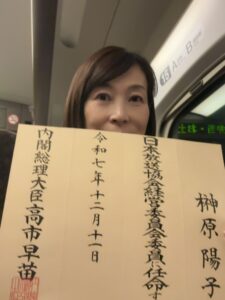 榊原陽子
日本放送協会経営委員会委員に任命する
令和七年十二月十一日
内閣総理大臣 高市早苗
13
A
B